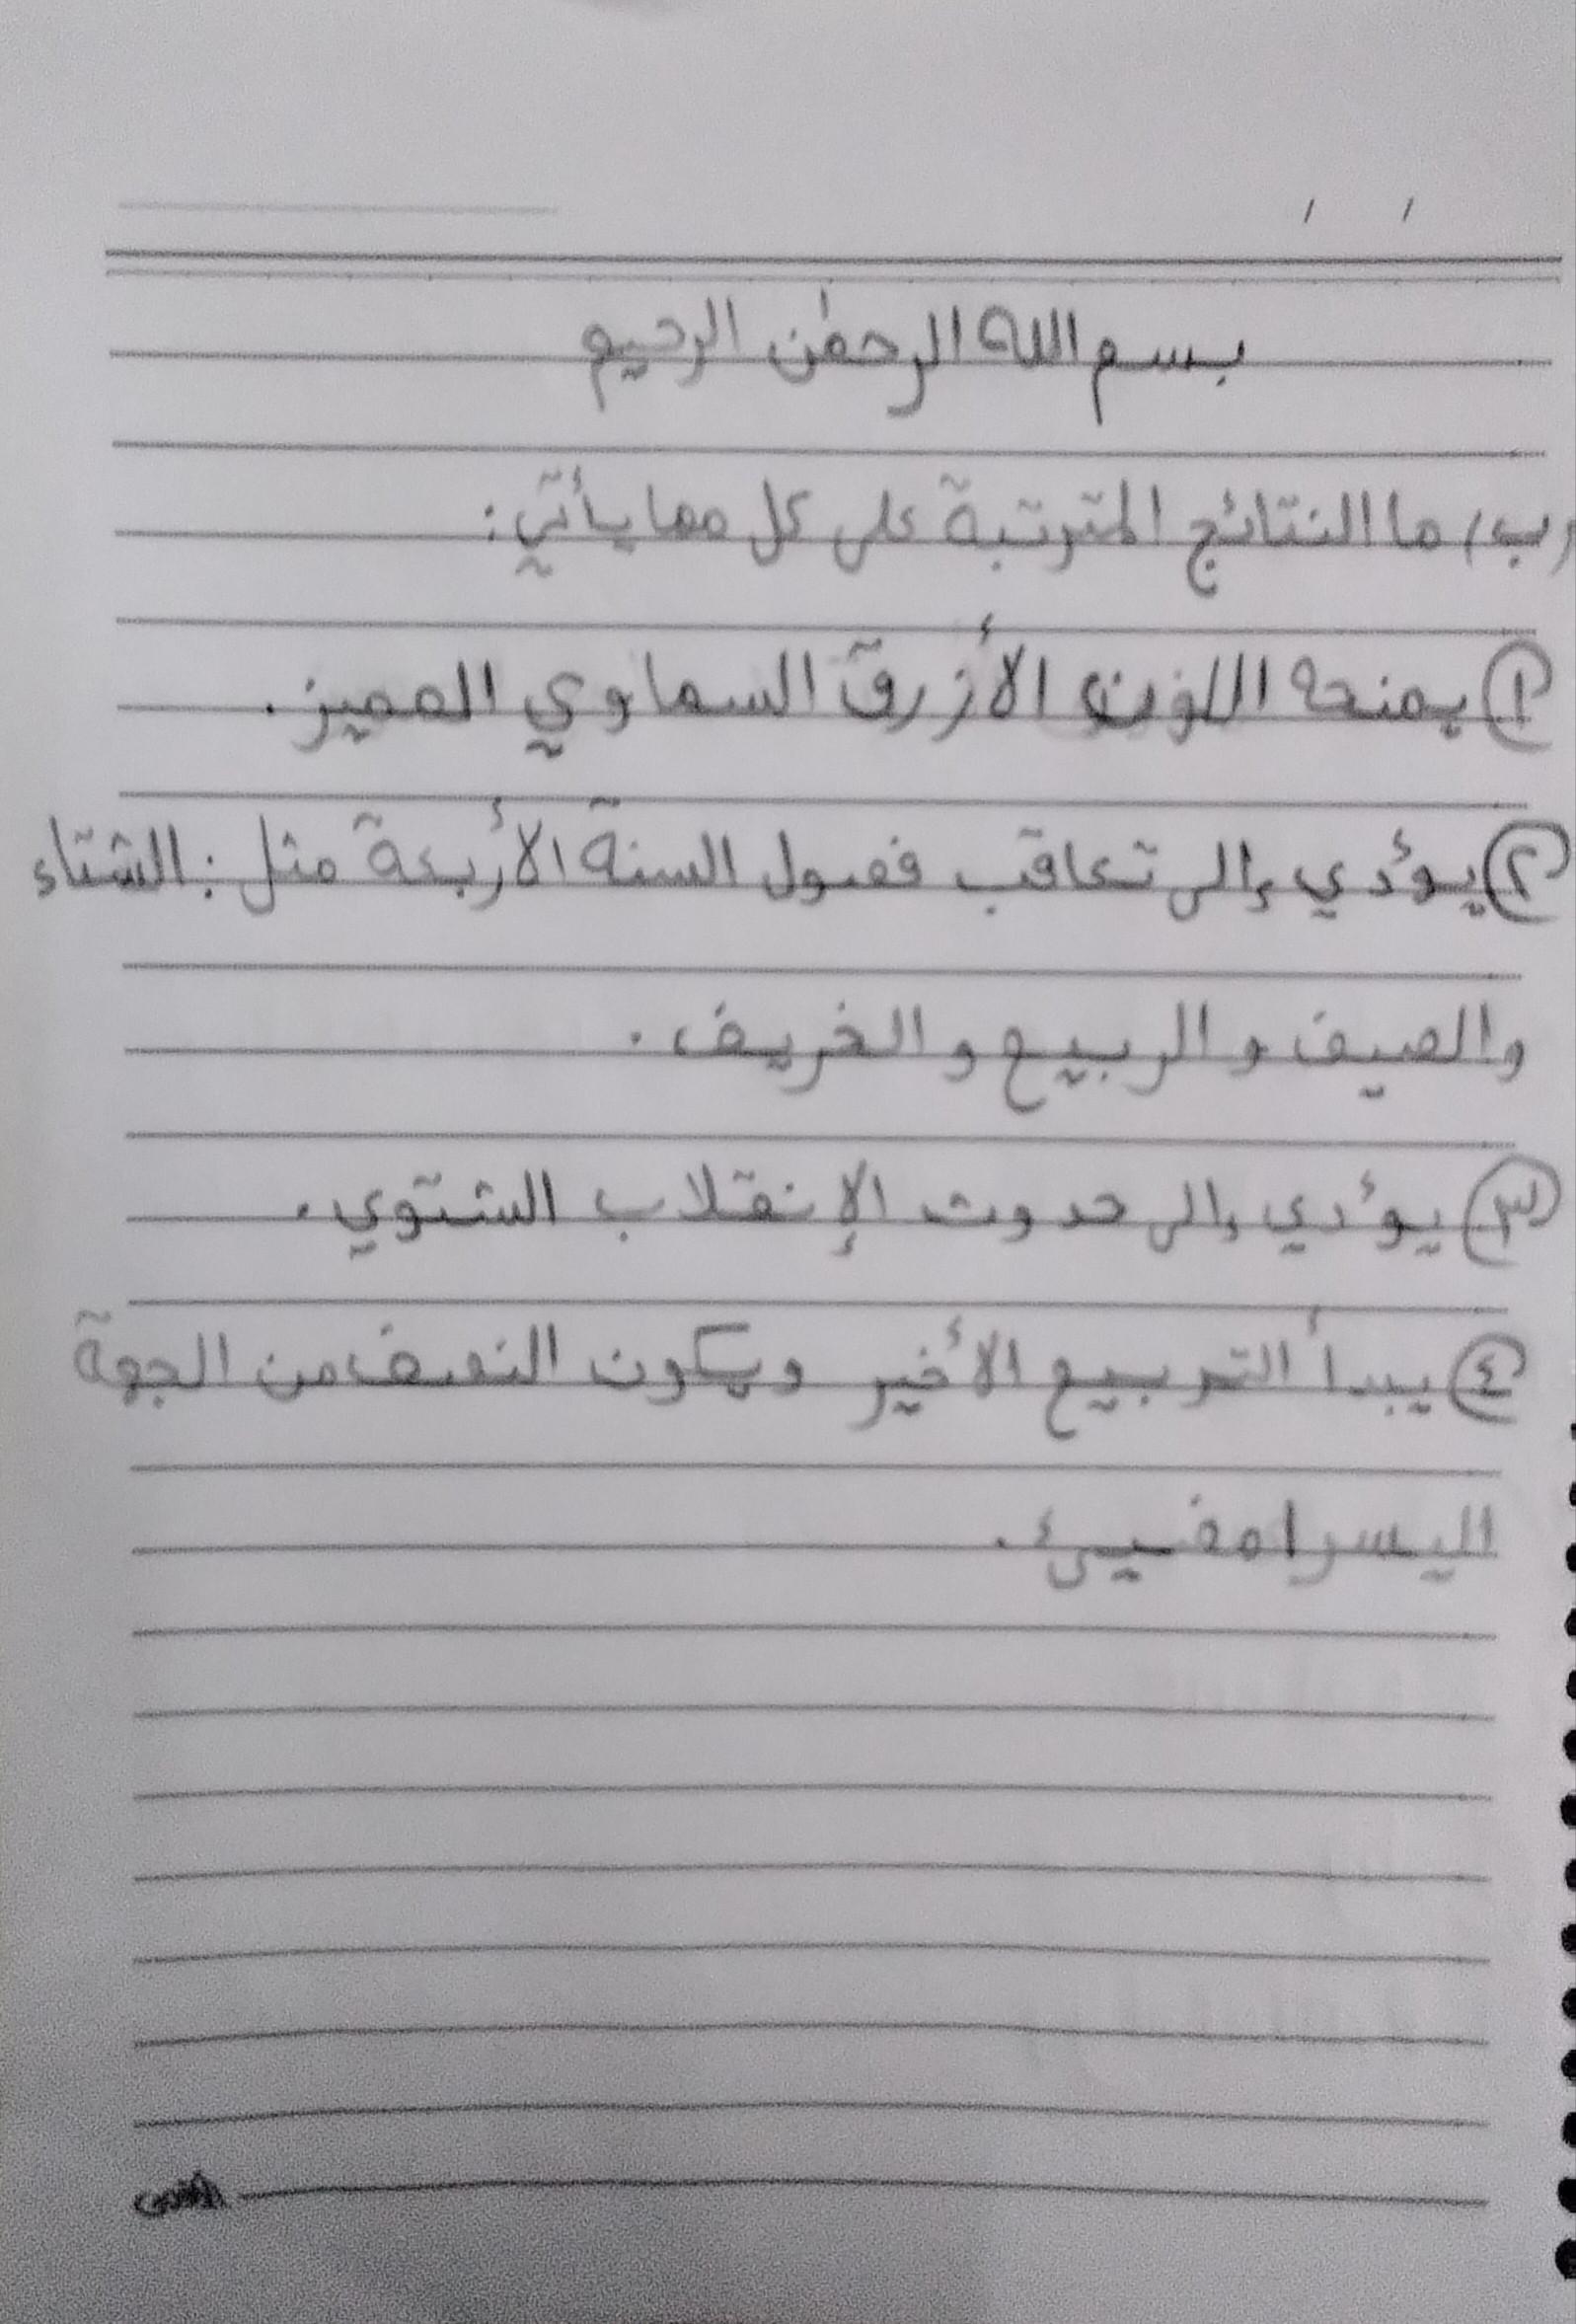 بسم الله الرحمٰن الرحيم
(ب) ما النتائج المترتبة على كل مما يأتي:
١ يمنحه اللون الأزرق السماوي المميز.
٢ يؤدي إلى تعاقب فصول السنة الأربعة مثل: الشتاء
والصيف والربيع والخريف.
٣ يؤدي إلى حدوث الإنقلاب الشتوي.
٤ يبدأ التربيع الأخير ويكون النصف من الجهة
اليسرا مضيئ.